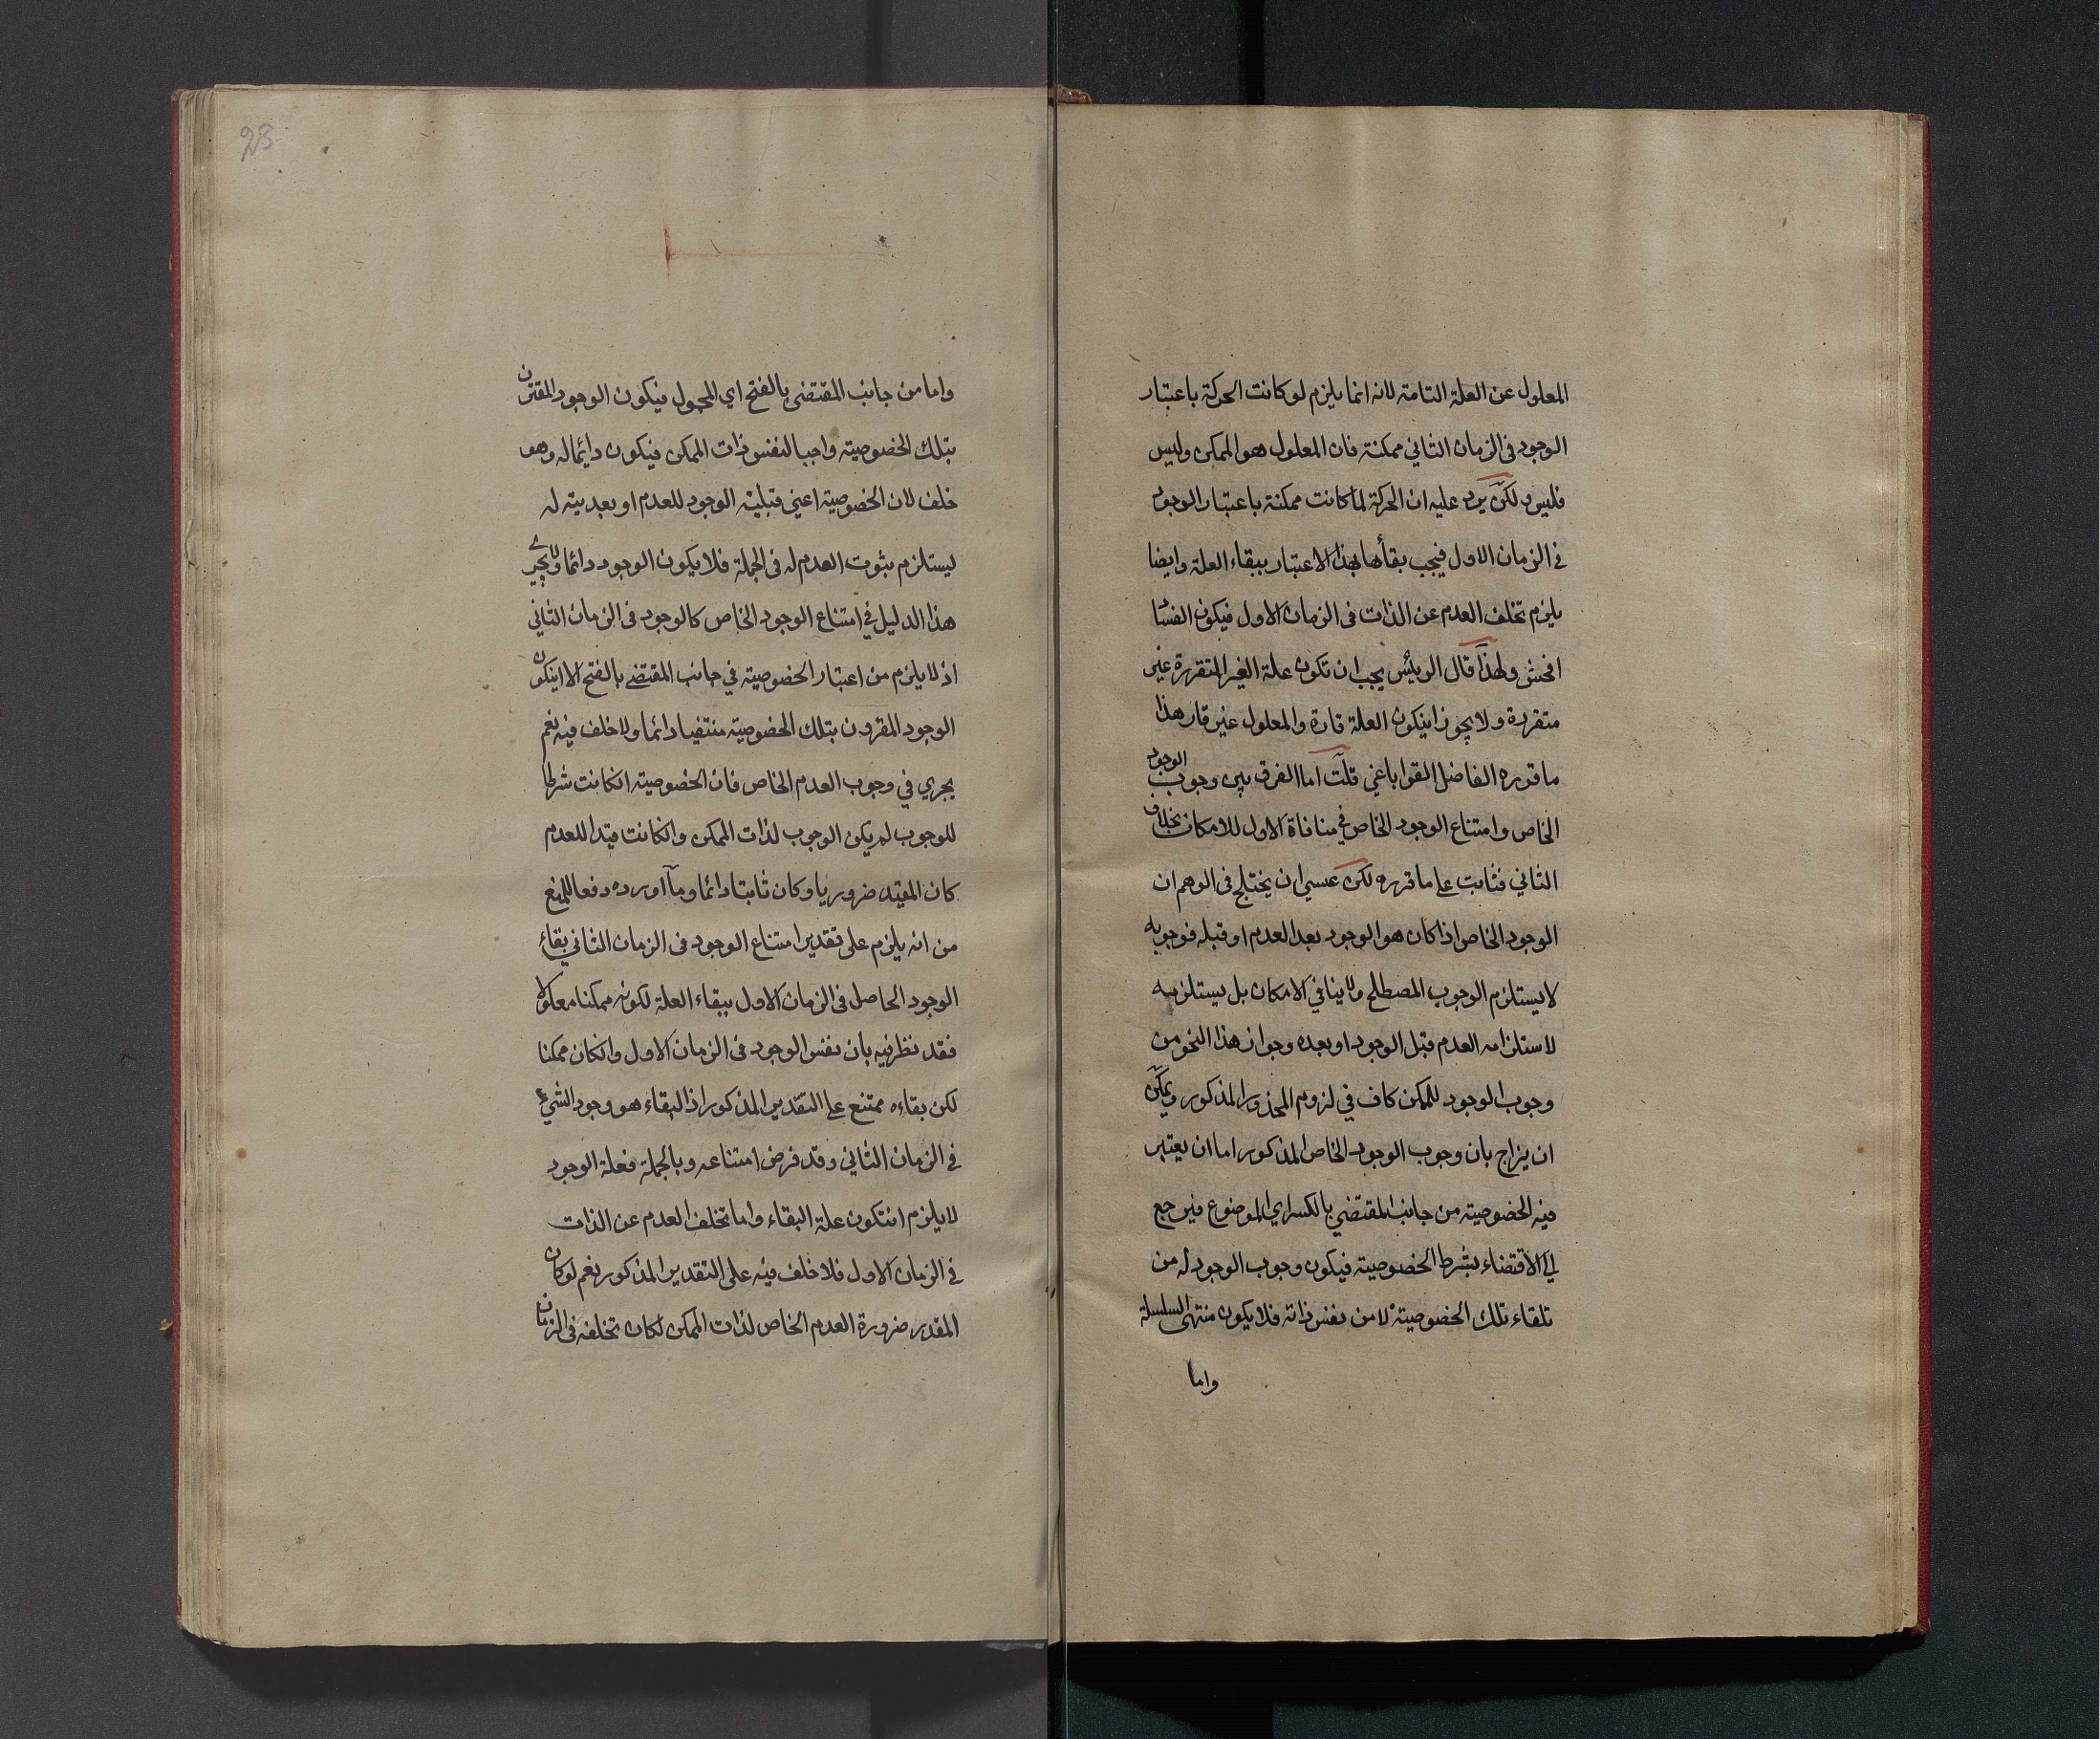 المعلول عن العلة التامة لانه انما يلزم لو كانت الحركة باعتبار
الوجود فى الزمان الثاني ممكنة فان المعلول هو الممكن وليس
فليس لكن يرد عليه ان الحركة لما كانت ممكنة باعتبار الوجود
في الزمان الاول فيجب بقأها بهذا الاعتبار ببقاء العلة وايضا
يلزم تخلف العدم عن الذات فى الزمان الاول فيكون الفساد
افحش ولهذا قال الرئيس يجب ان تكون علة الغير المتقررة غير
متقررة ولا يجوز ان يكون العلة قارة والمعلول غير قار هذا
ما قرره الفاضل القرا باغي قلت اما الفرق بين وجوب الوجود
الخاص وامتناع الوجود الخاص في منافاة الاول للامكان بخلاف
الثاني فثابت على ما قرره لكن عسى ان يختلج فى الوهم ان
الوجود الخاص اذا كان هو الوجود بعد العدم او قبله فوجوبه
لا يستلزم الوجوب المصطلح ولا ينافي الامكان بل يستلزمه
لاستلزامه العدم قبل الوجود او بعده وجواز هذا النحو من
وجوب الوجود للممكن كاف في لزوم المحذور المذكور ويمكن
ان يزاح بان وجوب الوجود الخاص المذكور اما ان يعتبر
فيه الخصوصية من جانب المقتضي بالكسر اي الموضوع فيرجع
الى الاقتضاء بشرط الخصوصية فيكون وجوب الوجود له من
تلقاء تلك الخصوصية لا من نفس ذاته فلا يكون منتهى السلسلة
واما
23
واما من جانب المقتضى بالفتح اي المحمول فيكون الوجود المقترن
بتلك الخصوصية واجبا لنفس ذات الممكن فيكون دايما له وهو
خلف لان الخصوصية اعني قبلية الوجود للعدم او بعديته له
يستلزم ثبوت العدم له فى الجملة فلا يكون الوجود دائما ولا يجري
هذا الدليل في امتناع الوجود الخاص كالوجود فى الزمان الثاني
اذ لا يلزم من اعتبار الخصوصية في جانب المقتضى بالفتح الا ان يكون
الوجود المقرون بتلك الخصوصية منتفيا دائما ولا خلف فيه نعم
يجري في وجوب العدم الخاص فان الخصوصية ان كانت شرطا
للوجوب لم يكن الوجوب لذات الممكن وان كانت قيدا للعدم
كان المقيد ضروريا وكان ثابتا دائما وما اورده دفعا للمنع
من انه يلزم على تقدير امتناع الوجود فى الزمان الثاني بقاء
الوجود الحاصل فى الزمان الاول ببقاء العلة لكونه ممكنا معلولا
فقد نظر فيه بان نفس الوجود فى الزمان الاول وان كان ممكنا
لكن بقاءه ممتنع على التقدير المذكور اذ البقاء هو وجود الشيء
في الزمان الثاني وقد فرض امتناعه وبالجملة فعلة الوجود
لا يلزم ان تكون علة البقاء واما تخلف العدم عن الذات
في الزمان الاول فلا خلف فيه على التقدير المذكور نعم لو كان
المقدر ضرورة العدم الخاص لذات الممكن لكان تخلفه فى الزمان